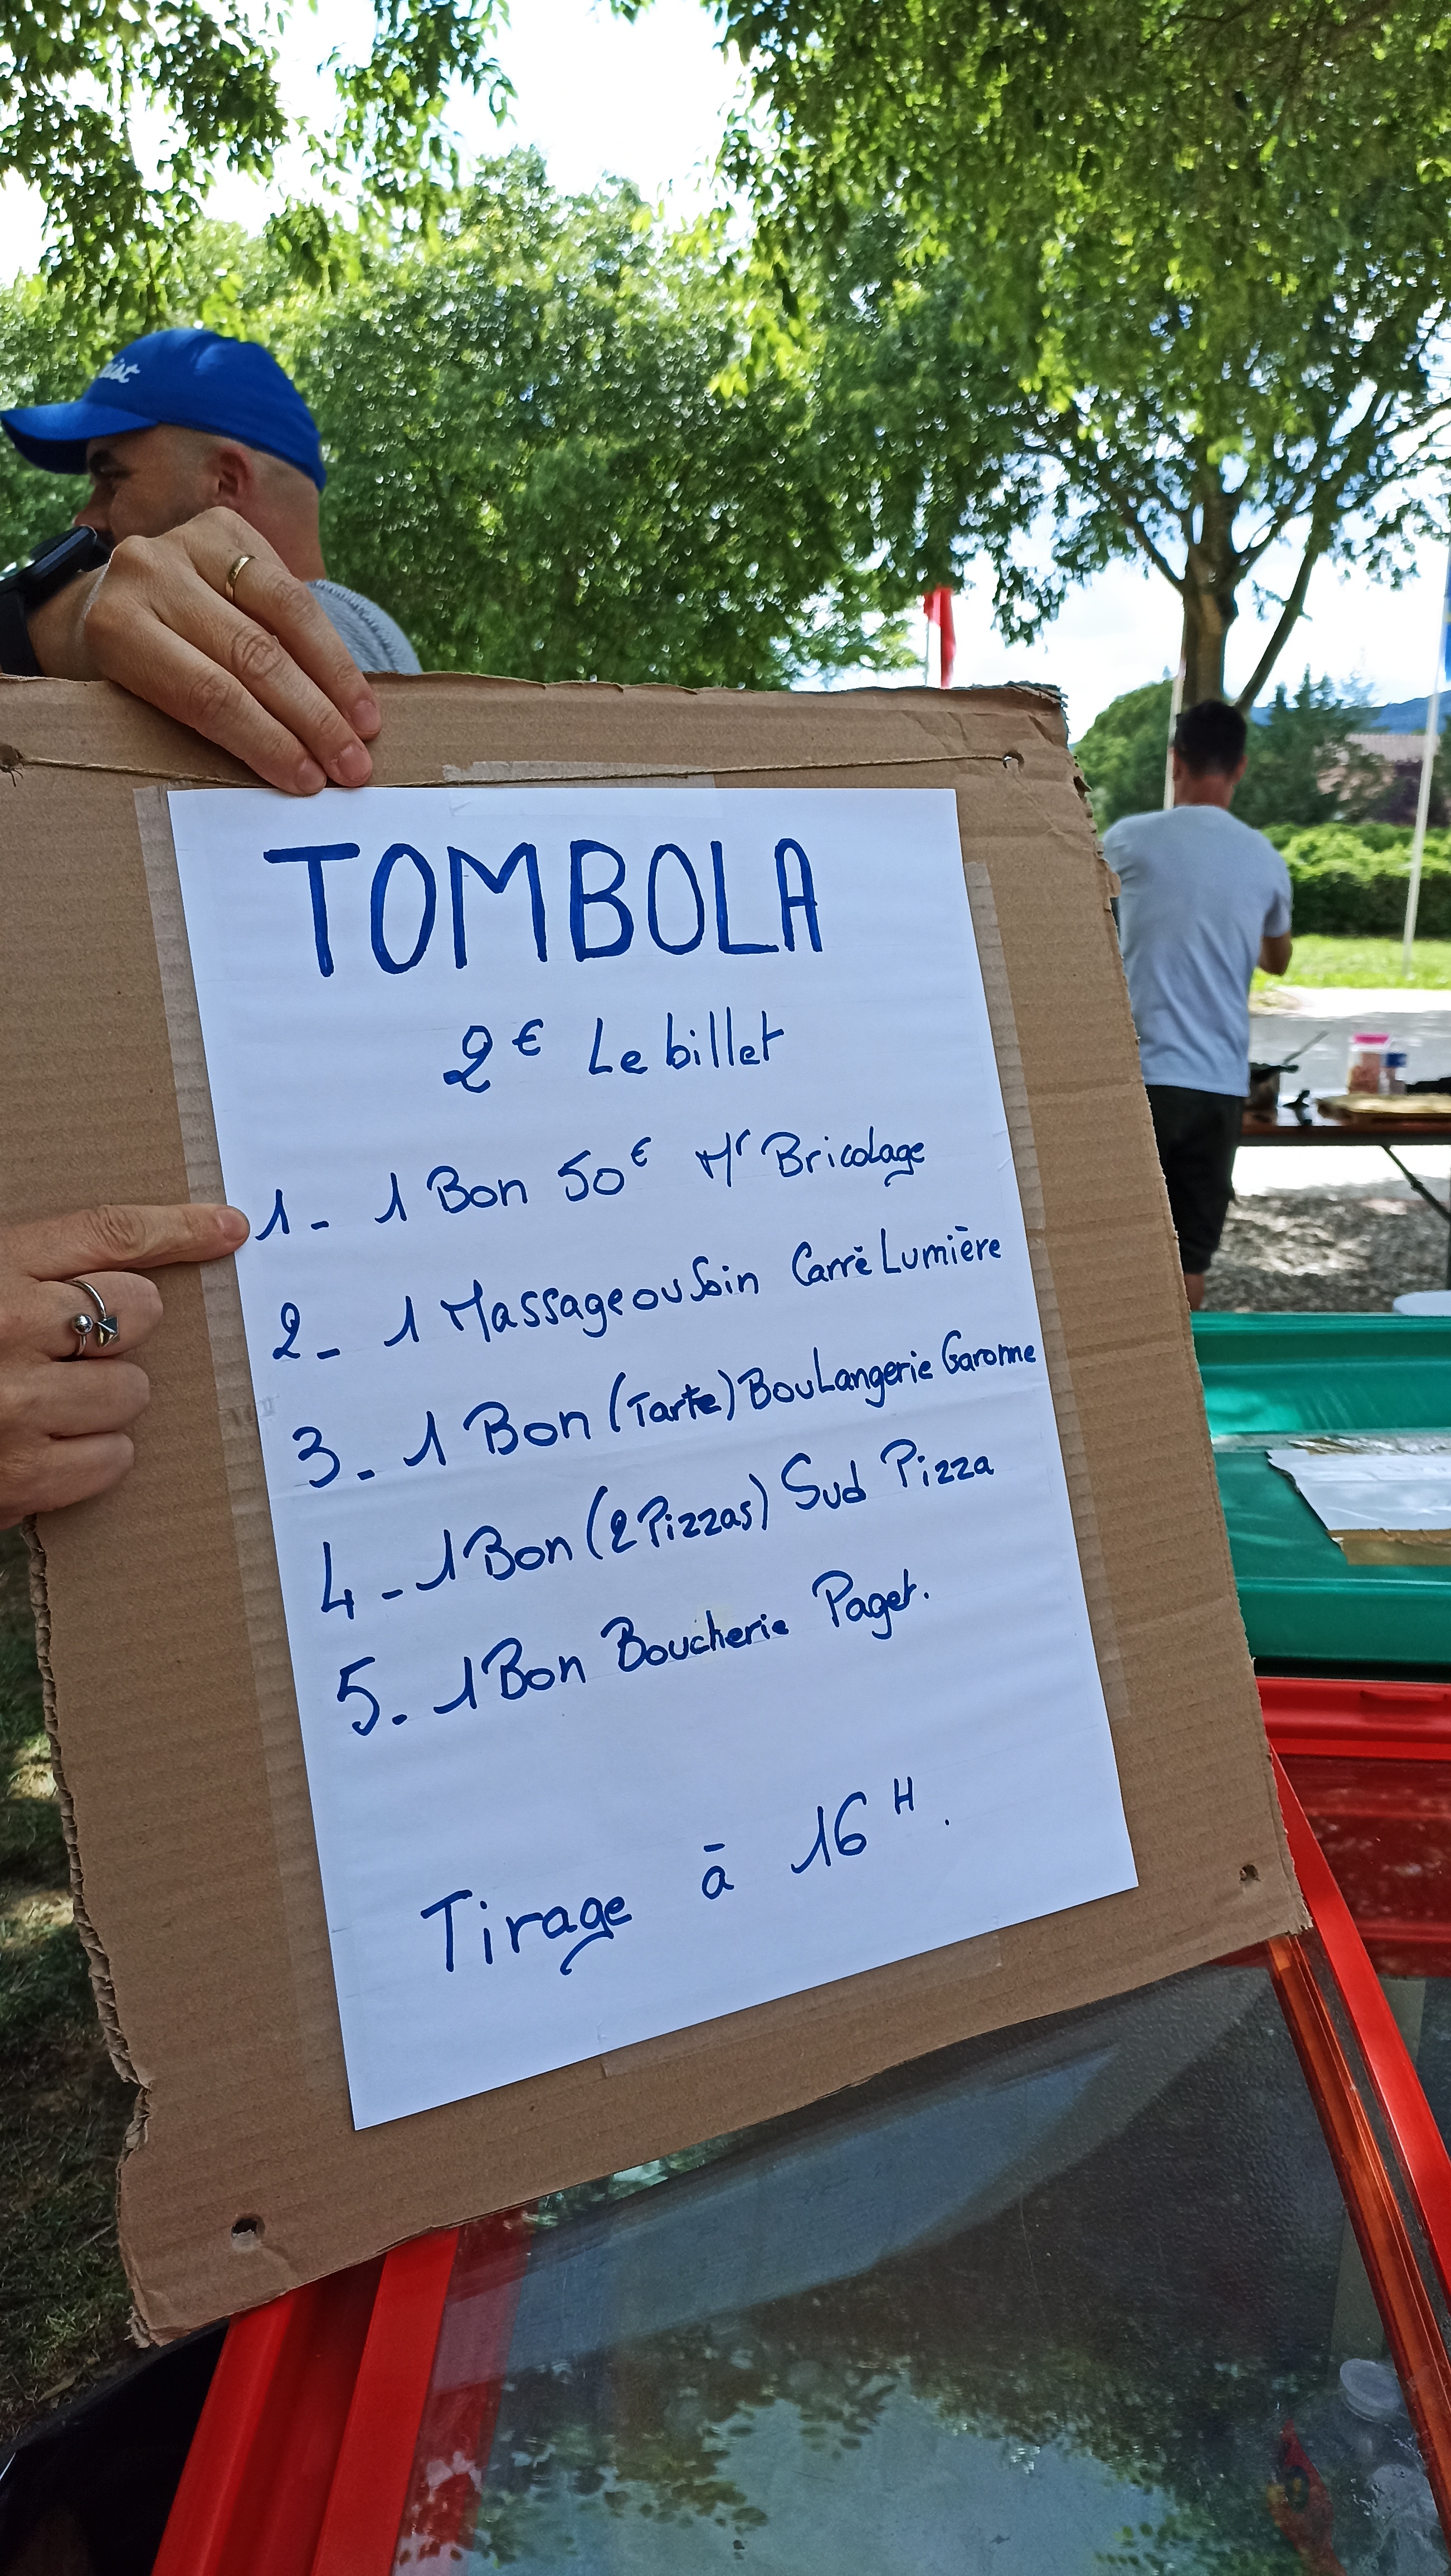 TOMBOLA
2€ Le billet
1- 1 Bon 50€ Mr Bricolage
2- 1 Massage ou Soin Carré Lumière
3- 1 Bon (Tarte) Boulangerie Garonne
4- 1 Bon (2 Pizzas) Sud Pizza
5. 1 Bon Boucherie Paget.
Tirage à 16H.